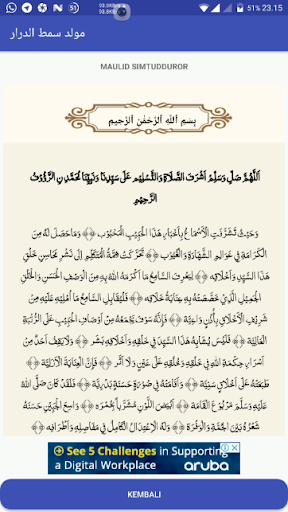 51% 23.15
مولد سمط الدرار
MAULID SIMTUDDUROR
بِسْمِ اللهِ الرَّحْمٰنِ الرَّحِيْمِ
اَللّٰهُمَّ صَلِّ وَسَلِّمْ اَشْرَفَ الصَّلَاةِ وَالتَّسْلِيْمِ عَلٰى سَيِّدِنَا وَنَبِيِّنَا مُحَمَّدٍ نِ الرَّؤُوْفِ
الرَّحِيْمِ
وَحَيْثُ تَشَرَّفَتِ الْأَسْمَاعُ بِأَخْبَارِ هٰذَا الْحَبِيْبِ الْمَحْبُوْبِ ۞ وَمَا حَصَلَ لَهُ مِنَ
الْكَرَامَةِ فِيْ عَوَالِمِ الشَّهَادَةِ وَالْغُيُوْبِ ۞ تَحَرَّكَتْ هِمَّةُ الْمُتَكَلِّمِ إِلٰى نَشْرِ مَحَاسِنِ خَلْقِ
هٰذَا السَّيِّدِ وَأَخْلَاقِهِ ۞ لِيَعْرِفَ السَّامِعُ مَا أَكْرَمَهُ اللهُ بِهِ مِنَ الْوَصْفِ الْحَسَنِ وَالْخَلْقِ
الْجَمِيْلِ الَّذِيْ خَصَّصَتْهُ بِهِ عِنَايَةُ خَلَّاقِهِ ۞ فَلْيُقَابِلِ السَّامِعُ مَا أُمْلِيْهِ عَلَيْهِ مِنْ
شَرِيْفِ الْأَخْلَاقِ بِأُذُنٍ وَاعِيَةْ ۞ فَإِنَّهُ سَوْفَ يَجْمَعُهُ مِنْ أَوْصَافِ الْحَبِيْبِ عَلَى الرُّتْبَةِ
الْعَالِيَةْ ۞ فَلَيْسَ يُشَابِهُ هٰذَا السَّيِّدَ فِيْ خَلْقِهِ وَأَخْلَاقِهِ بَشَرْ ۞ وَلَا يَقِفُ أَحَدٌ مِنْ
أَسْرَارِ حِكْمَةِ اللهِ فِيْ خَلْقِهِ وَخُلُقِهِ عَلٰى عَيْنٍ وَلَا أَثَرْ ۞ فَإِنَّ الْعِنَايَةَ الْأَزَلِيَّةْ ۞
طَبَعَتْهُ عَلٰى أَخْلَاقٍ سَنِيَّةْ ۞ وَأَقَامَتْهُ فِيْ صُوْرَةٍ حَسَنَةٍ بَدْرِيَّةْ ۞ فَلَقَدْ كَانَ صَلَّى اللهُ
عَلَيْهِ وَسَلَّمَ مَرْبُوْعَ الْقَامَةِ ۞ أَبْيَضَ اللَّوْنِ مُشَرَّبًا بِحُمْرَةٍ ۞ وَاسِعَ الْجَبِيْنِ حَسَنَهُ
شَعْرُهُ بَيْنَ الْجُمَّةِ وَالْوَفْرَةِ ۞ وَلَهُ الْاِعْتِدَالُ الْكَامِلُ فِيْ مَفَاصِلِهِ وَأَطْرَافِهِ ۞
See 5 Challenges in Supporting
a Digital Workplace
aruba
KEMBALI